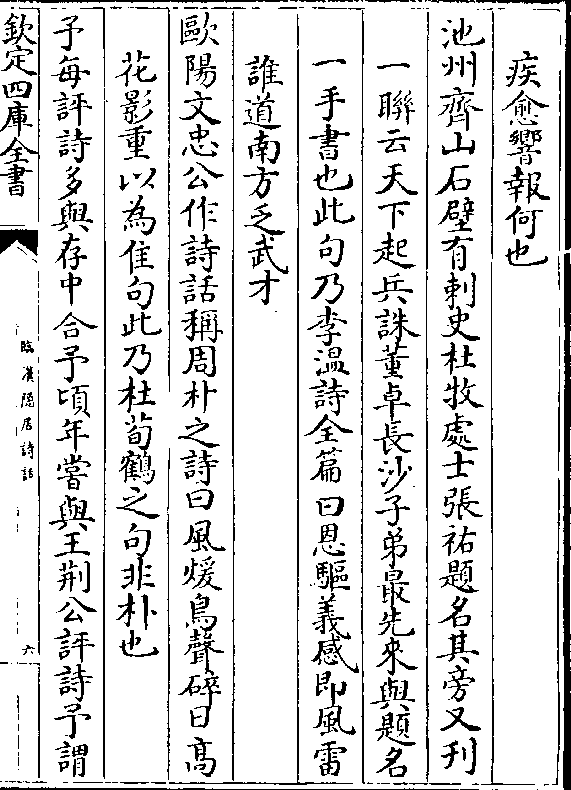 疾愈響報何也
池州齊山石壁有刺史杜牧處士張祐題名其旁又刋
一聯云天下起兵誅董卓長沙子弟最先來與題名
一手書也此句乃李温詩全篇曰恩驅義感即風雷
誰道南方乏武才
歐陽文忠公作詩話稱周朴之詩曰風煖鳥聲碎日髙
花影重以為佳句此乃杜荀鶴之句非朴也
予每評詩多與存中合予頃年嘗與王荆公評詩予謂
欽定四庫全書
臨漢隠居詩話
六